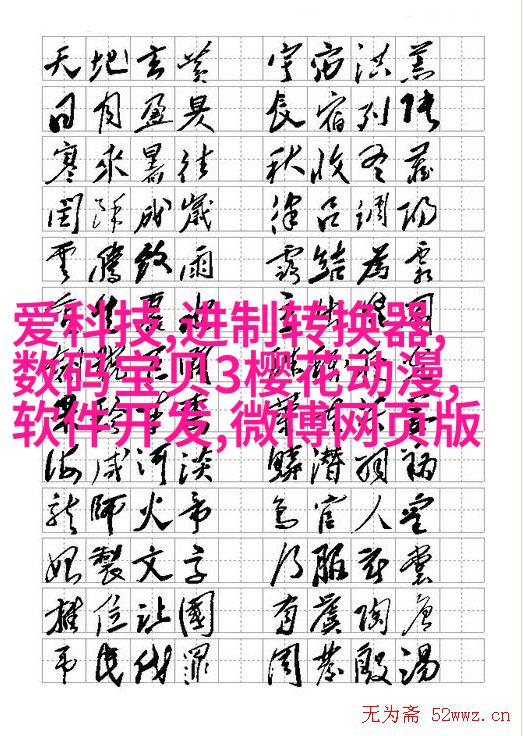 天地玄黄 宇宙洪荒
日月盈昃 辰宿列張
寒來暑往 秋收冬藏
閏餘成歲 律吕調陽
雲騰致雨 露結為霜
爱科技,进制转换器,
数码宝贝3樱花动漫,
软件开发,微博网页版
海咸河淡 鳞潜羽翔
龍師火帝 鳥官人皇
始製文字 乃服衣裳
推位让國 有虞陶唐
弔民伐罪 周發殷湯
无为斋 52wwz.cn